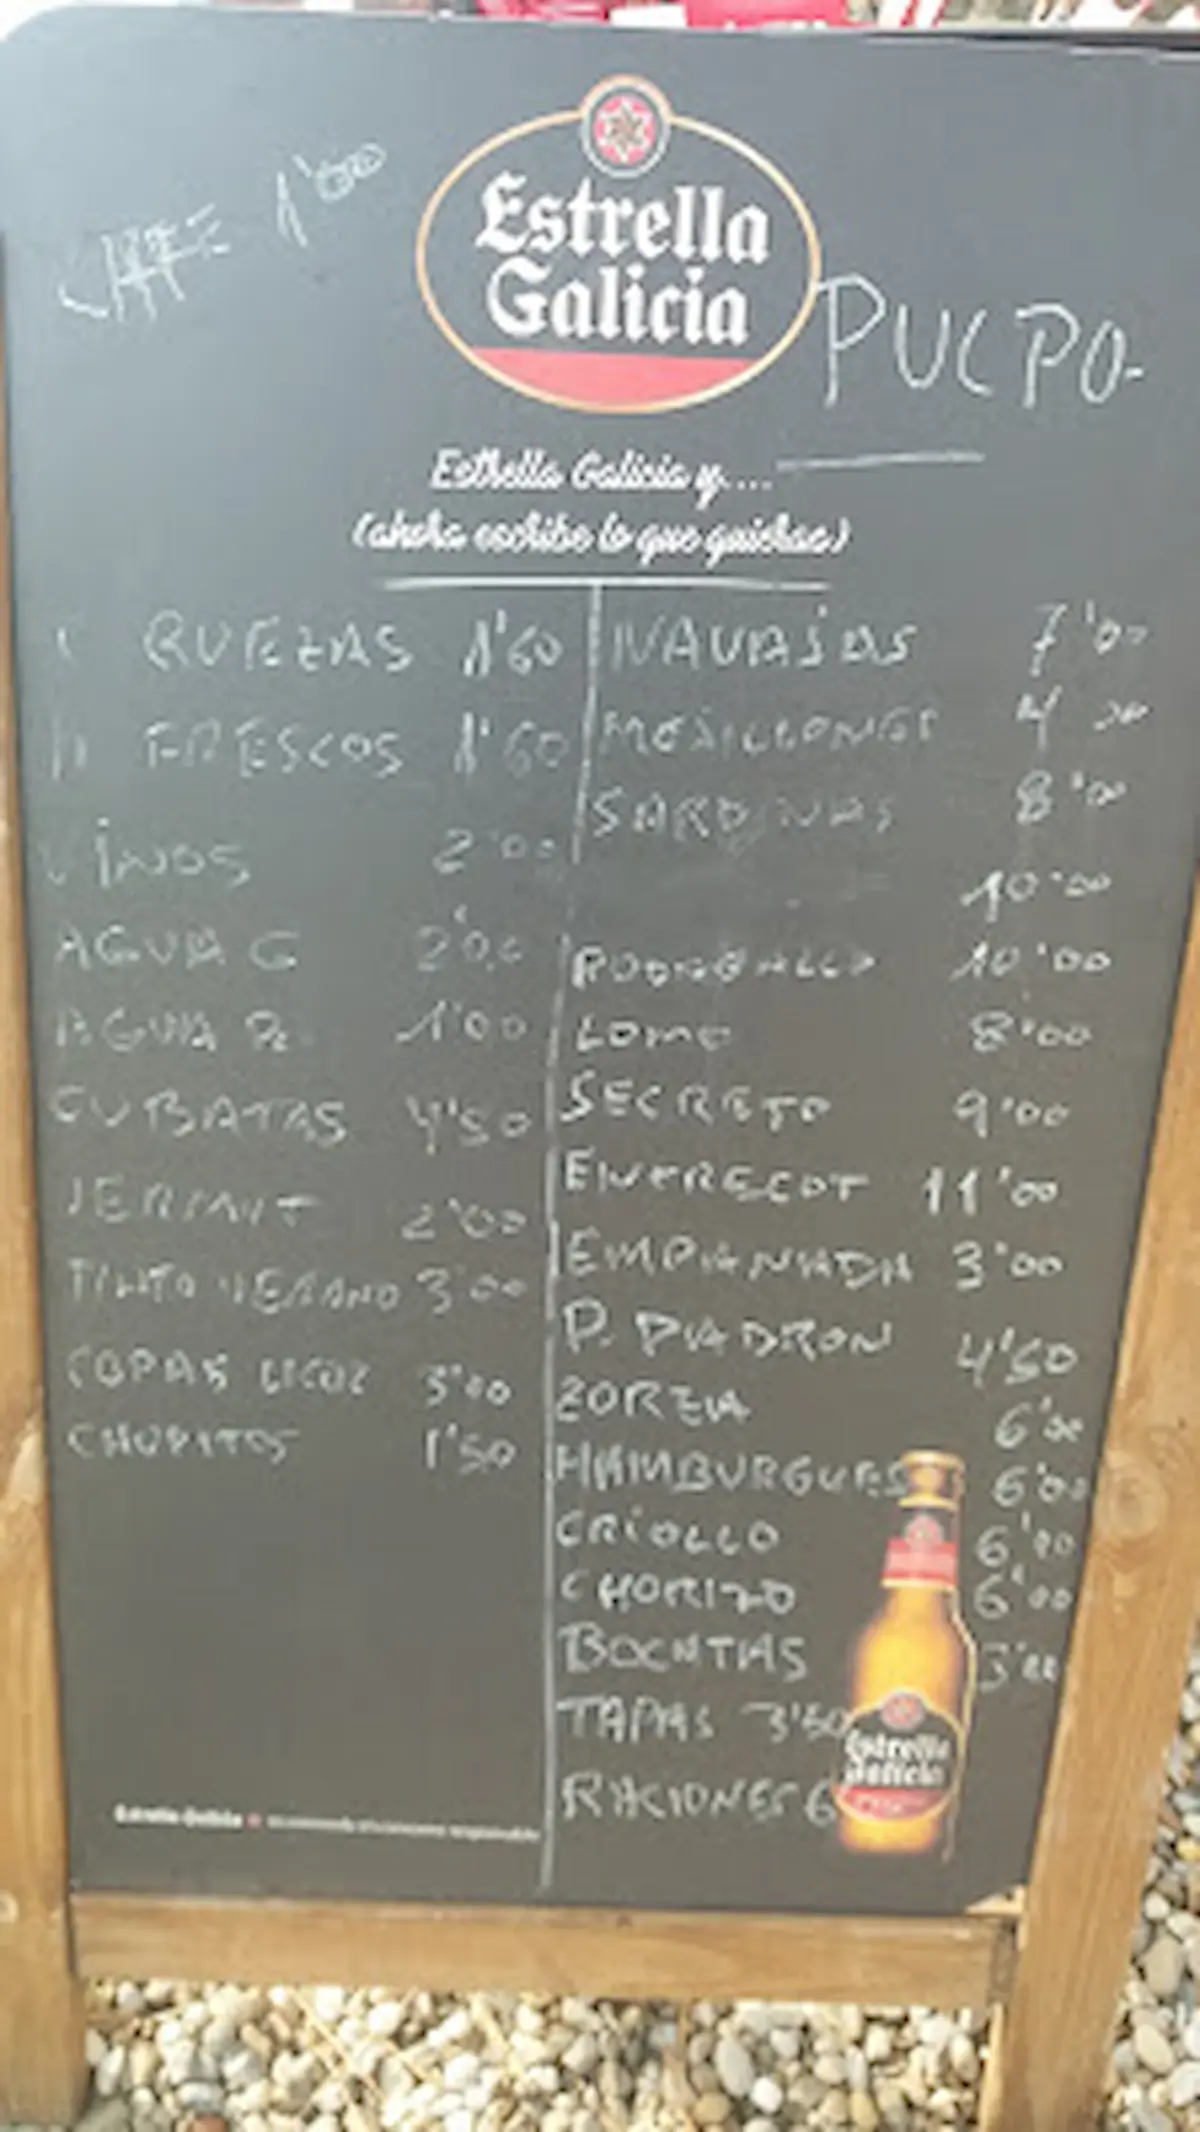 CAFE 1'00
Estrella
Galicia
PULPO-
Estrella Galicia y....
(ahora escribe lo que quieras)
QUEZAS 1'60
FRESCOS 1'60
VINOS 2'00
AGUA G 2'00
AGUA P. 1'00
CUBATAS 4'50
VERMUT 2'00
TINTO VERANO 3'00
COPAS LICOR 3'00
CHUPITOS 1'50
NAVAJAS 7'00
MEJILLONES
SARDINAS 8'00
10'00
RODABALLO 10'00
LOMO 8'00
SECRETO 9'00
ENTRECOT 11'00
EMPANADA 3'00
P. PADRON 4'50
ZORZA 6'00
HAMBURGUES 6'00
CRIOLLO 6'00
CHORIZO 6'00
BOCATAS 3'00
TAPAS 3'50
RACIONES 6
Estrella
Galicia
Estrella Galicia